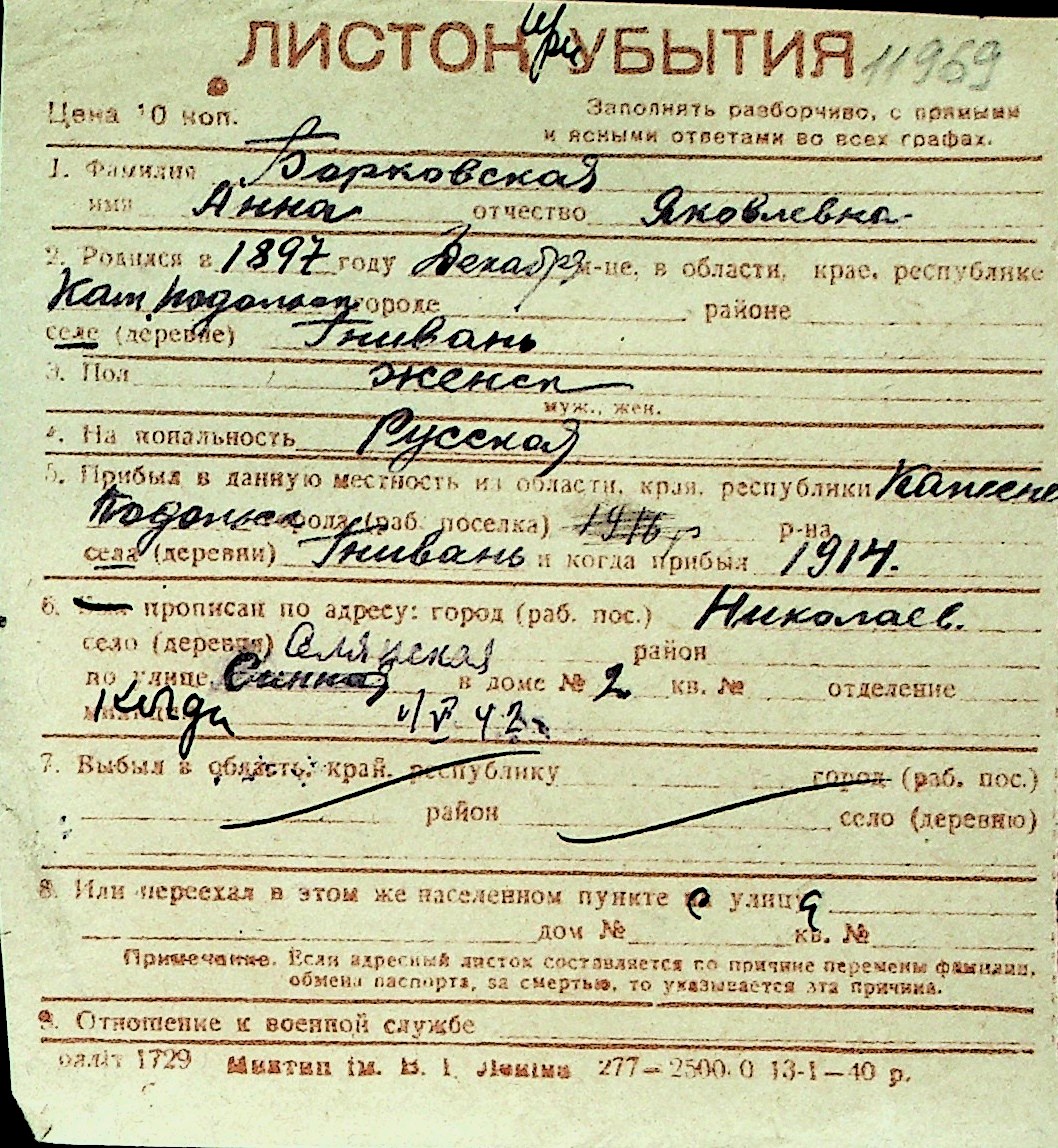 ЛИСТОК при УБЫТИЯ 11969
Цена 10 коп. Заполнять разборчиво, с прямыми
и ясными ответами во всех графах.
1. Фамилия Борковская
имя Анна отчество Яковлевна
2. Родился в 1897 году Декабря м-це, в области, крае, республике
Кам. Подольск городе районе
селе (деревне) Гнивань
3. Пол женск
муж., жен.
4. Национальность Русская
5. Прибыл в данную местность из области, края, республики Каменец
Подольск города (раб. поселка) 1916 р-на
села (деревни) Гнивань и когда прибыл 1914.
6. прописан по адресу: город (раб. пос.) Николаев.
село (деревня) Селянская район
по улице Сенная в доме № 2 кв. № отделение
Когда 1/V 42
7. Выбыл в область, край, республику город (раб. пос.)
район село (деревню)
8. Или переехал в этом же населенном пункте с улицы
дом № кв. №
Примечание. Если адресный листок составляется по причине перемены фамилии,
обмена паспорта, за смертью, то указывается эта причина.
9. Отношение к военной службе
облліт 1729 Миктип ім. В. І. Леніна 277—2500.0 13-1—40 р.